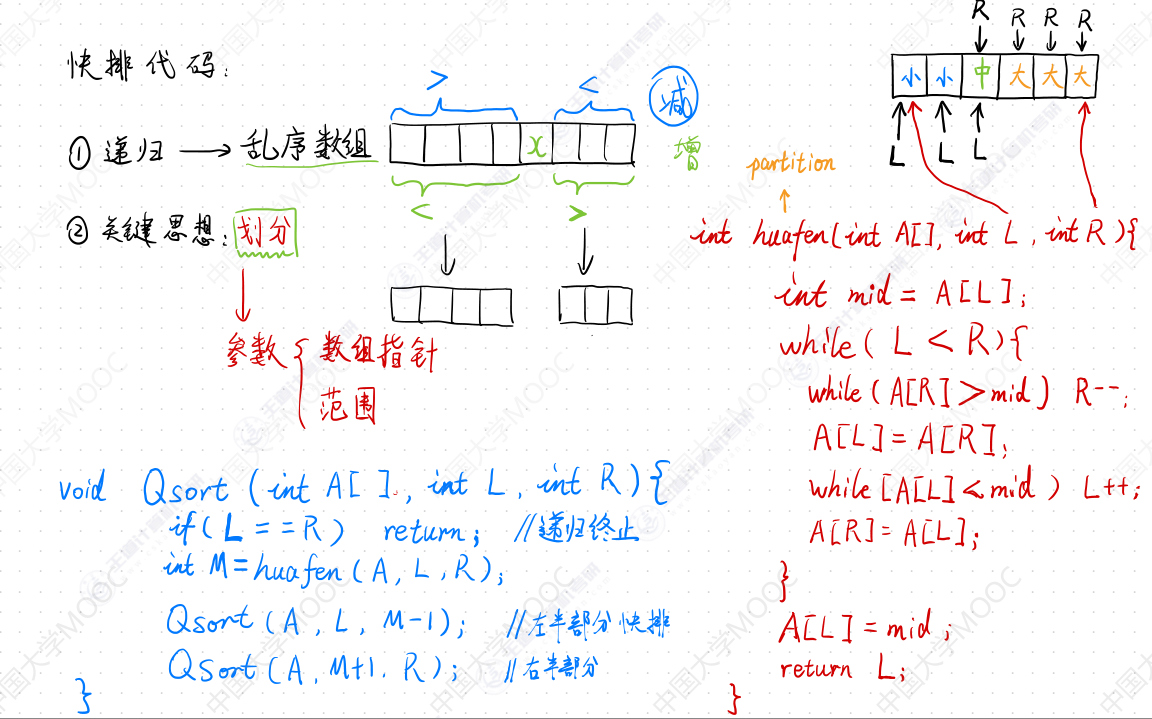 快排代码:
① 递归 → 乱序数组
> <
x
减
增
< >
② 关键思想: 划分
参数 { 数组指针
范围
void Qsort (int A[ ], int L, int R){
if(L==R) return; //递归终止
int M=huafen(A, L, R);
Qsort(A, L, M-1); //左半部分快排
Qsort(A, M+1, R); //右半部分
}
R R R R
小 小 中 大 大 大
L L L
partition
int huafen(int A[], int L, int R){
int mid = A[L];
while( L < R){
while(A[R]>mid) R--;
A[L]=A[R];
while[A[L]≤mid) L++;
A[R]=A[L];
}
A[L]=mid;
return L;
}
中国大学MOOC